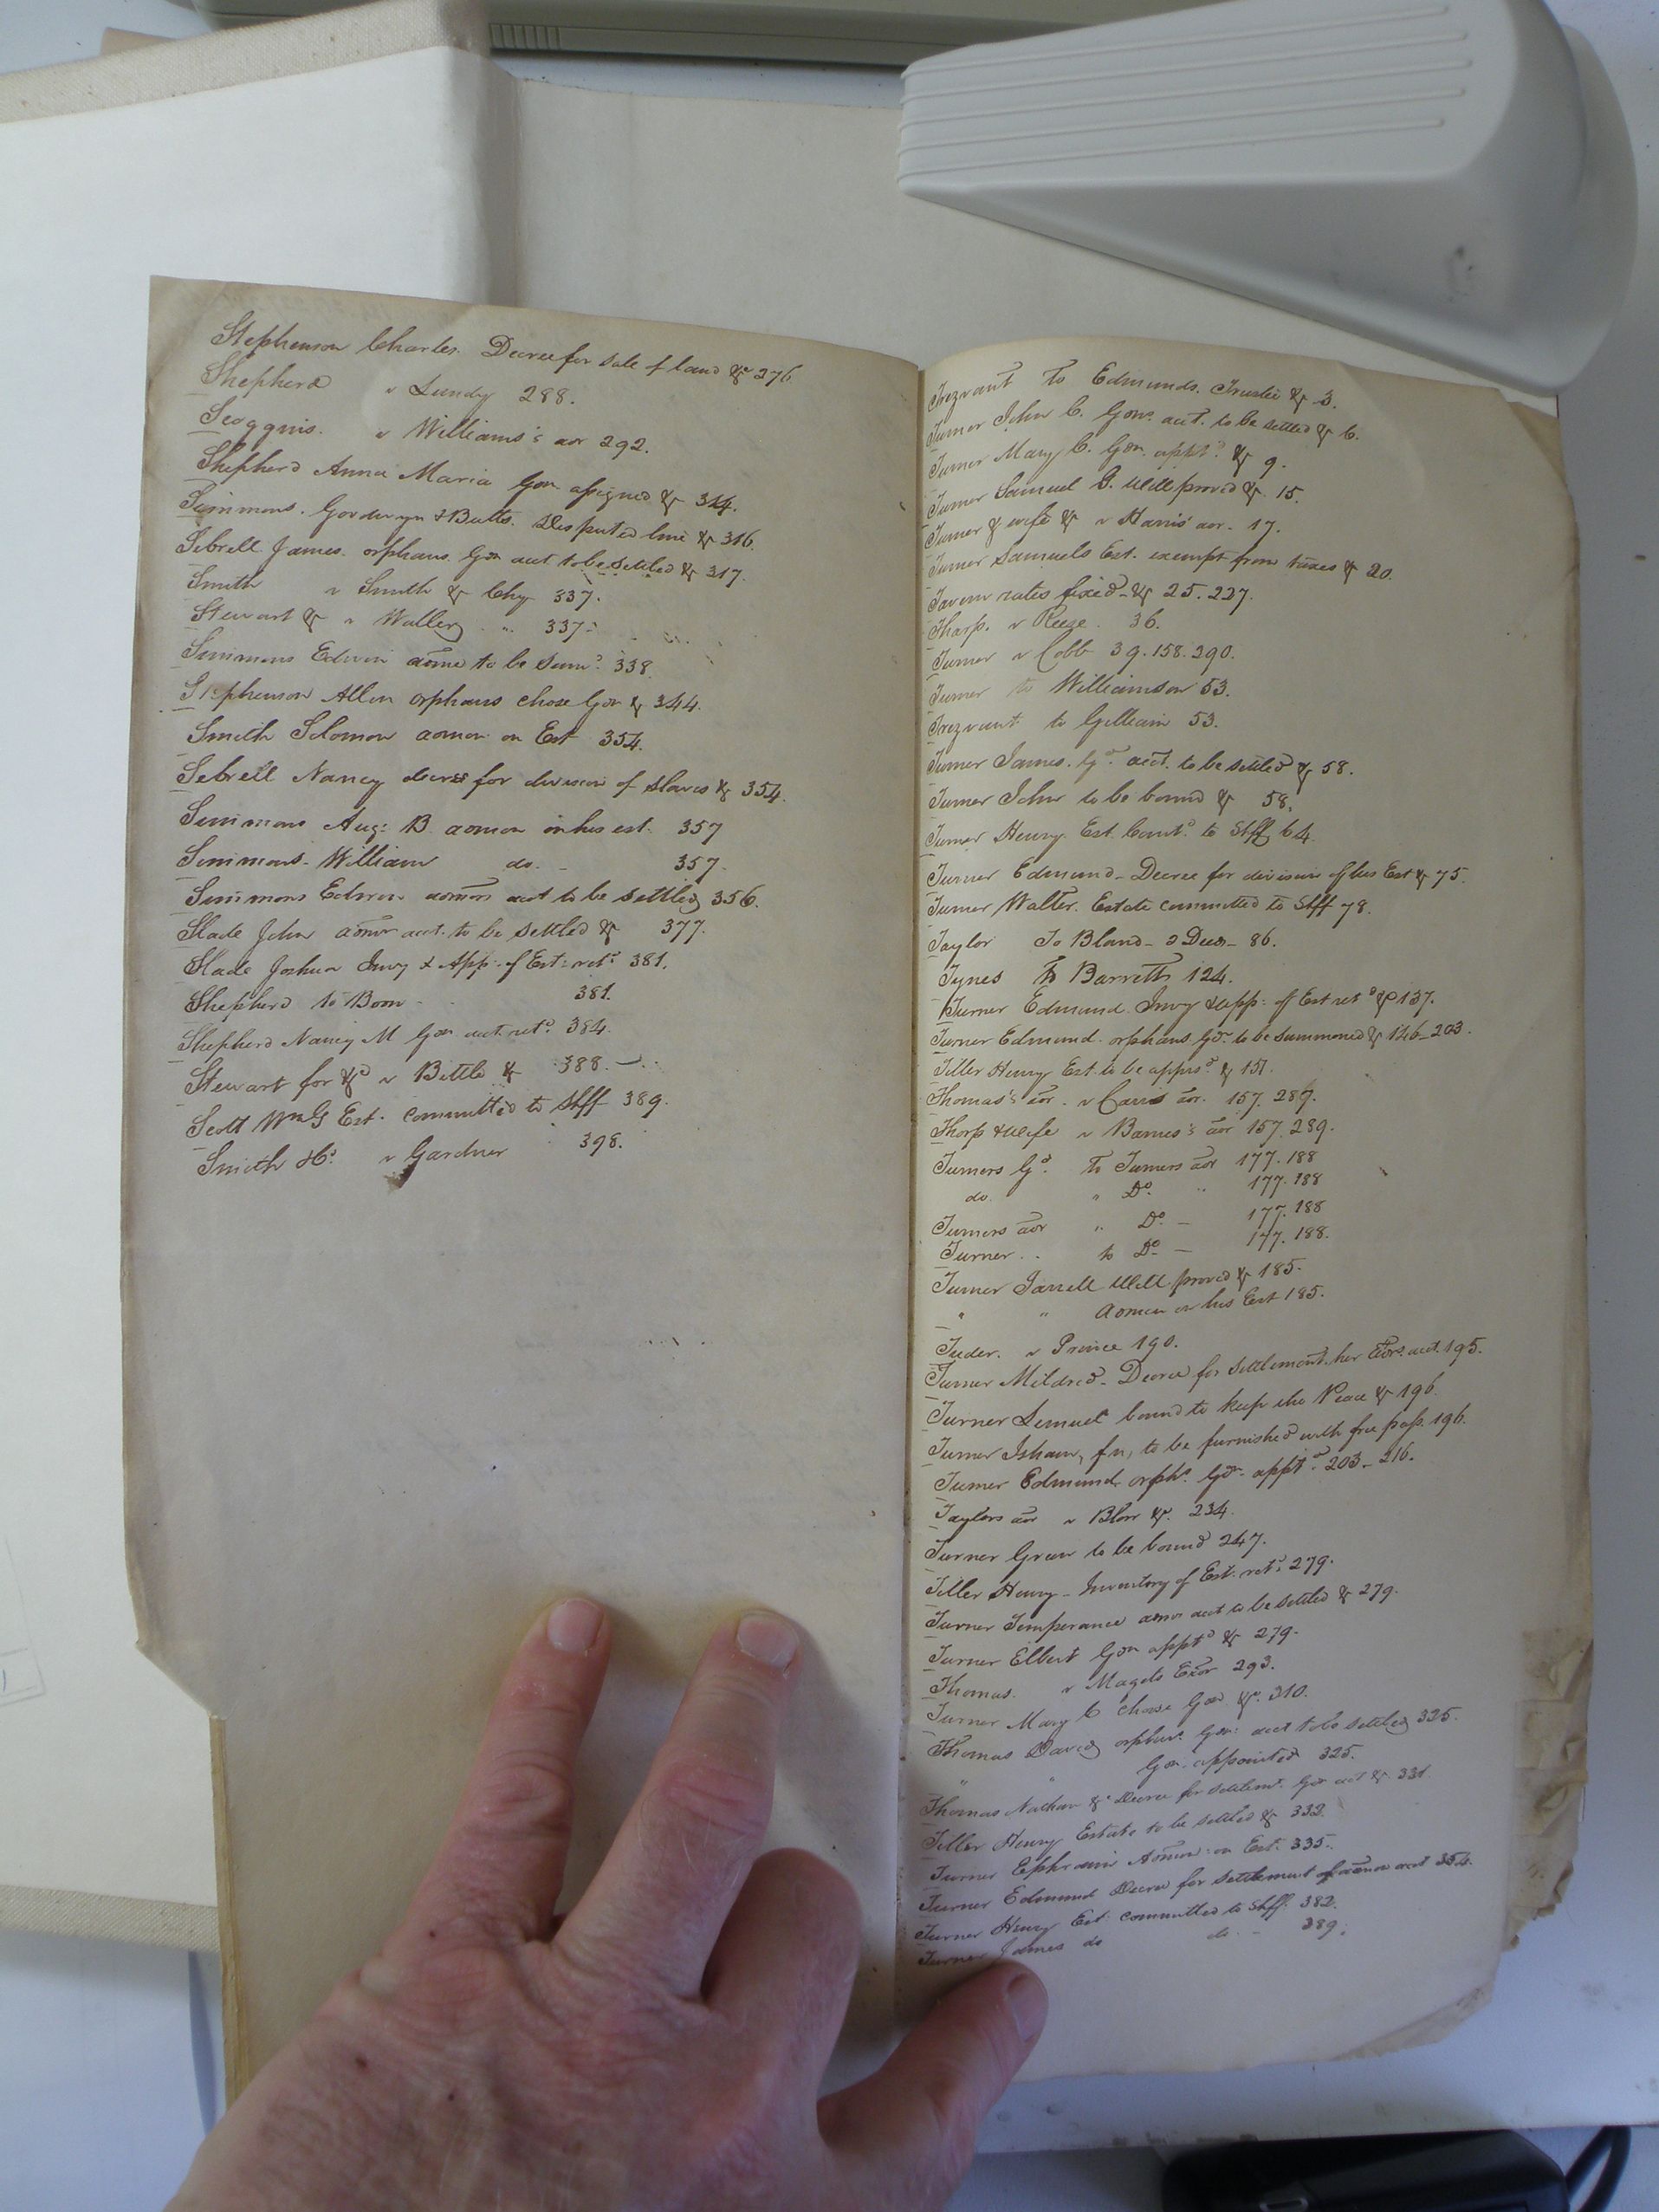 Stephenson Charles. Decree for sale of land &c 276
Shepherd v Lundy 288.
Scoggins. v Williams's aor 292.
Shepherd Anna Maria Gdn assigned & 314.
Simmons. Goodwyn & Butts. Disputed line & 316.
Sebrell James. orphans Gdn acct to be settled & 317.
Smith v Smith & Chy 337.
Stewart & v Waller " 337.
Simmons Edwin admr to be Sumd. 338.
Stephenson Allen orphans chose Gdn & 344.
Smith Solomon admon on Est 354.
Sebrell Nancy decree for division of slaves & 354.
Simmons Aug: B. admon on his est. 357
Simmons William do. - 357.
Simmons Edwin admors acct to be settled 356.
Slade John admr acct. to be settled & 377.
Slade Joshua Invy & App: of Est: retd 381.
Shepherd to Boon - 381.
Shepherd Nancy M Gdn acct. retd. 384.
Stewart for &c v Bittle & 388.
Scott Wm G Est. committed to Shff 389.
Smith & Co. v Gardner 398.
Trezvant To Edmunds. Trustee & 3.
Turner John C. Gdns. acct. to be settled & 6.
Turner Mary C. Gdn. apptd. & 9.
Turner Samuel B. Will proved & 15.
Turner & wife & v Harris' aor. 17.
Turner Samuels Est. exempt from taxes & 20.
Tavern rates fixed - & 25. 227.
Tharp. v Reese. 36.
Turner v Cobb 39. 158. 290.
Turner to Williamson 53.
Trezvant to Gilliam 53.
Turner James. Gd. acct. to be settled & 58.
Turner John to be bound & 58.
Turner Henry. Est. Comtd. to Shff 64.
Turner Edmund - Decree for division of his Est & 75.
Turner Walter. Estate committed to Shff 78.
Taylor To Bland - 2 Deeds - 86.
Tynes To Barrett 124.
Turner Edmund. Invy & app: of Est retd &c 137.
Turner Edmund. orphans Gdn. to be summoned & 146 - 203.
Tiller Henry Est. to be apprsd. & 151.
Thomas's aor. v aor. 157. 289.
Thorp & Wife v Barnes's aor 157. 289.
Turners Gd. To Turners aor 177. 188
do. " Do. " 177. 188
Turners aor " Do. - 177. 188
Turner . . to Do. - 177. 188.
Turner Jarrell Will proved & 185.
" " Admon on his Est 185.
Tuder. v Prince 190.
Turner Mildred - Decree for settlement her Exors. acct. 195.
Turner Lemuel bound to keep the Peace & 196
Turner Isham, fn, to be furnished with free pass. 196.
Turner Edmund orphs. Gdn. apptd. 203 - 216.
Taylors aor v Blow &. 234.
Turner Green to be bound 247.
Tiller Henry - Inventory of Est. retd. 279.
Turner Temperance admr acct to be settled & 279.
Turner Elbert Gdn apptd & 279.
Thomas. v Magets Exor 293.
Turner Mary C chose Gdn &c. 310.
Thomas David orphans Gdn: acct to be settled 325.
" " Gdn. appointed 325.
Thomas Nathan & Decree for settlemt. Gdn acct & 331.
Tiller Henry Estate to be settled & 332.
Turner Ephraim Admon: on Est: 335.
Turner Edmund Decree for settlement of admon acct 354.
Turner Henry Est. committed to Shff. 382.
Turner James do do. - 389.